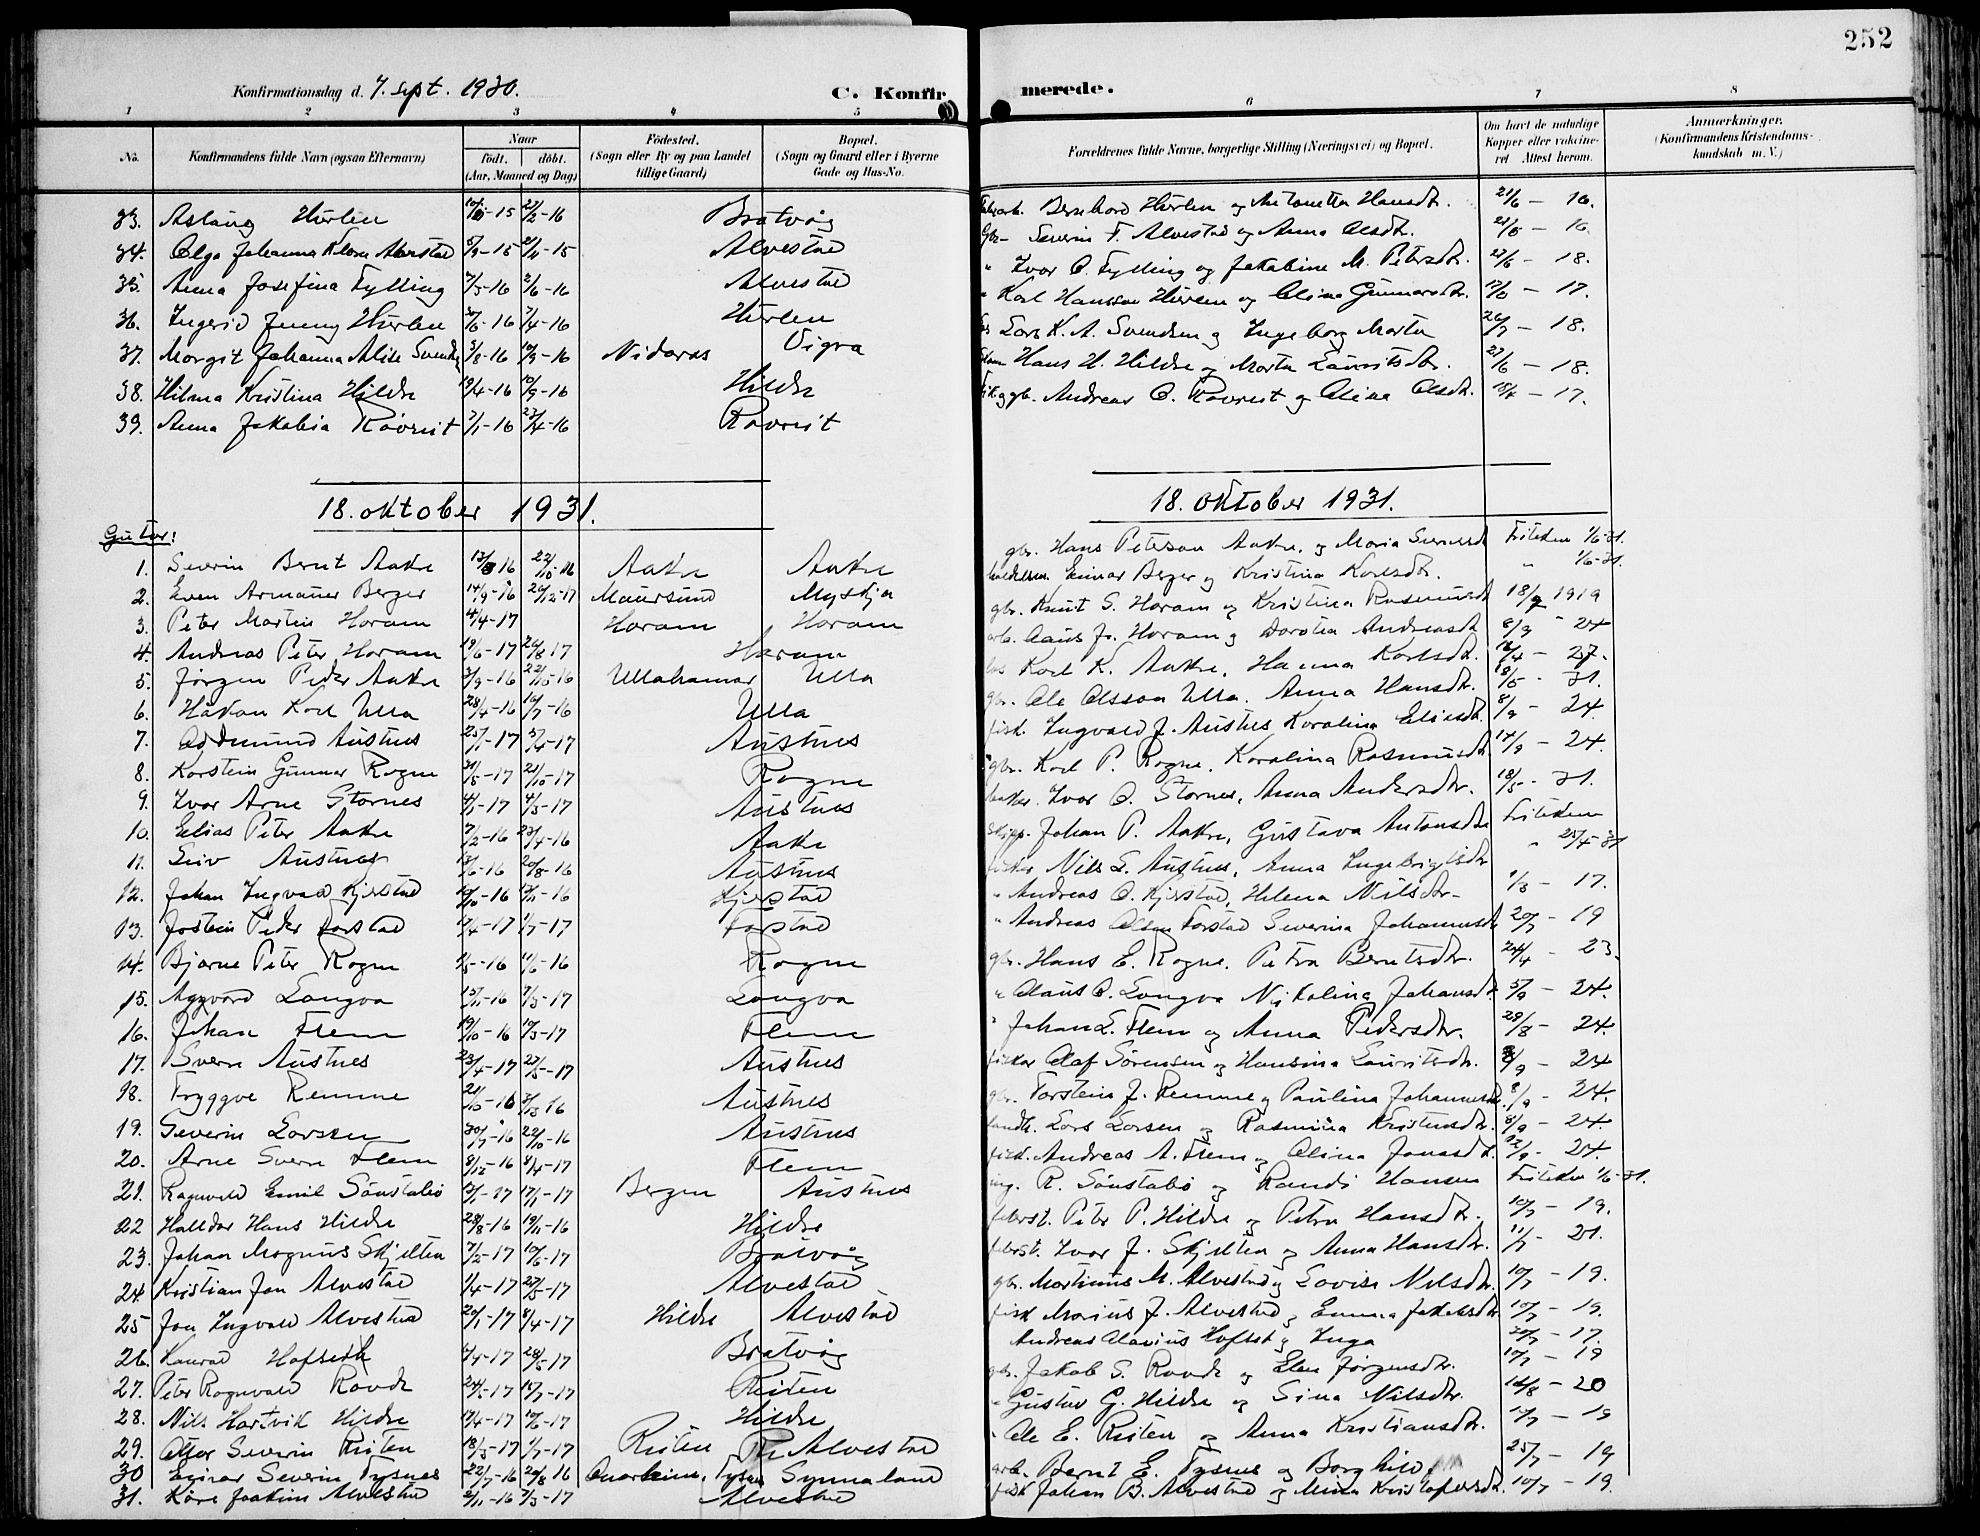 252
Konfirmationsdag d. 7. sept. 1930. C. Konfirmerede.
1 2 3 4 5 6 7 8
No. Konfirmandens fulde Navn (ogsaa Efternavn) Naar födt. döbt. (Aar, Maaned og Dag) Födested. (Sogn eller By og paa Landet tillige Gaard) Bopæl. (Sogn og Gaard eller i Byerne Gade og Hus-No. Forældrenes fulde Navne, borgerlige Stilling (Næringsvei) og Bopæl. Om havt de naturlige Kopper eller vaccineret. Attest herom. Anmærkninger. (Konfirmandens Kristendomskundskab m. V.)
33. Aslaug Hurlen -15 -16 Bratvåg Hurlen og Antonetta Hansdtr. 21/6 - 16.
34. Olga Johanna Alvestad 5/9-15 21/11-15 Alvestad Severin F. Alvestad og Anna Olsdtr. - 16.
35. Anna Josefina Fylling 7/3-16 2/6-16 Alvestad Ivar O. Fylling og Jakobine M. Petersdtr. 21/6 - 18.
36. Ingerid Jenny Hurlen -16 7/4-16 Hurlen Karl Hansson Hurlen og Olina Gunnarsdtr. - 17.
37. Margit Johanna Alise -16 10/9-16 Nidaros Vigra Lars K. A. Svendsen og Ingeborg Marta 26/7 - 18.
38. Hilma Kristina Hildre 19/4-16 10/9-16 Hildre Hans H. Hildre og Marta Lauritsdtr. 21/6 - 18.
39. Anna Jakobia Røvreit 7/1-16 24/4-16 Røvreit Andreas O. Røvreit og Olina Olsdtr. - 17.
18. oktober 1931. 18. oktober 1931.
Gutar:
1. Severin Bernt Aakre -16 22/10-16 Aakre Aakre gbr. Hans Peterson Aakre, og Maria 1/6-31.
2. Even Armauer Berger 14/9-16 -17 Maursund Myskja Einar Berger og Kristina Karlsdtr. " 1/6-31
3. Peter Martin Haram 4/4-17 Haram Haram gbr. Knut S. Haram og Kristina Rasmusdt 18/9 1919
4. Andreas Peter Haram 19/6-17 26/8 17 Haram arb. Haram og Dorotea Andreasdt 8/9 - 24
5. Jørgen Peder Aakre 3/9-16 22/10-16 Ullahamar Ulla Karl K. Aakre, Hanna Karlsdtr. - 27.
6. Håkon Karl Ulla 28/4-16 16/7-16 Ulla gbr. Ole Olsson Ulla. Anna Hansdtr. 18/5 - 31.
7. Oddmund Austnes 25/1-17 -17 Austnes fisk. Ingvald J. Austnes Karolina Eliasdt. 8/9 - 24.
8. Karstein Gunnar Rogne -17 21/10-17 Rogne gbr. Karl P. Rogne. Karolina Rasmusdt 14/9 - 24.
9. Ivar Arne Stornes -17 -17 Austnes Ivar O. Stornes, Anna Andersdtr. 18/5 - 31.
10. Elias Peter Aakre 7/2-16 23/4-16 Aakre skipp. Johan P. Aakre, Gustava Antonsdtr
11. Austnes 13/6-16 20/8-16 Austnes Nils L. Austnes, Anna Ingebrigtsdtr " 25/4-31
12. Johan Ingvald Kjerstad -16 -16 Kjerstad " Andreas O. Kjerstad, Helena Nilsdtr - 1/3 - 17.
13. Jostein Peder Farstad 17/4-17 -17 Farstad " Andreas Olsen Farstad Severina Johannesdt 20/7 - 19
14. Bjarne Peter Rogne -16 -16 Rogne gbr. Hans E. Rogne. Petra Berntsdtr. 24/4 - 23.
15. Aggvard Longva 15/11-16 7/3-17 Longva " Claus O. Longva Nikolina Johansdt. - 24.
16. Johan Flem 19/10-16 -17 Flem " Johan L. Flem og Anna Pedersdtr. 28/8 - 24.
17. Sverre Austnes 23/4-17 -17 Austnes fisker Olaf Sørensen og Hansina Lauritsdtr. 8/9 - 24
18. Tryggve Remme 21/10-16 16 Austnes gbr. Torstein J. Remme og Paulina Johannesdt. 8/9 - 24.
19. Severin Larsen -16 22/10-16 Austnes Lars Larsen og Rasmina Kristensdtr. 8/9 - 24.
20. Arne Sverre Flem 8/12-16 8/4-17 Flem fisk. Andreas A. Flem og Olina Jonasdt. - 24.
21. Ragnvald Emil Sønstabø -17 -17 Bergen Austnes ing. R. Sønstabø og Randi Hansen 1/6-31.
22 Halldor Hans Hildre 28/8-16 19/11-16 Hildre Peter P. Hildre og Petra Hansdtr. 10/7 - 19.
23. Johan Magnus Skjelten 7/2-17 10/6-17 Bratvåg Ivar J. Skjelten og Anna Hansdtr. 11/7 - 21.
24 Kristian Jon Alvestad 1/4-17 27/5-17 Alvestad gbr. Martinus M. Alvestad og Lovise Nilsdtr. 10/7 - 19.
25 Jon Ingvald Alvestad 20/1-17 8/4-17 Hildre Alvestad fisk Marius J. Alvestad og Emma Jakobsdtr 10/7 - 19.
26. Konrad Hofseth 4/4-17 28/5-17 Bratvåg Andreas Olavius Hofset og Inga 20/7 - 17.
27. Peter Ragnvald Ravde -17 -17 Risten gbr. Jakob S. Ravde og Elen Jørgensdtr. 10/7 - 19
28. Nils Hartvik Hildre 17/4-17 10/6-17 Hildre " Gustav G. Hildre og Sina Nilsdtr. 14/8 - 20
29. Severin Risten 18/3-17 1/7-17 Risten Alvestad " Ole E. Risten og Anna Kristiansdtr. - 19
30 Einar Severin Tysnes 22/7-16 20/8 16 Tysnes Synnaland arb. Bernt E. Tysnes og Borghild 25/7 - 19
31. Kåre Joakim Alvestad 2/11-16 7/3-17 Alvestad fisk Johan B. Alvestad og Mina Kristofersdt. 10/7 - 19.